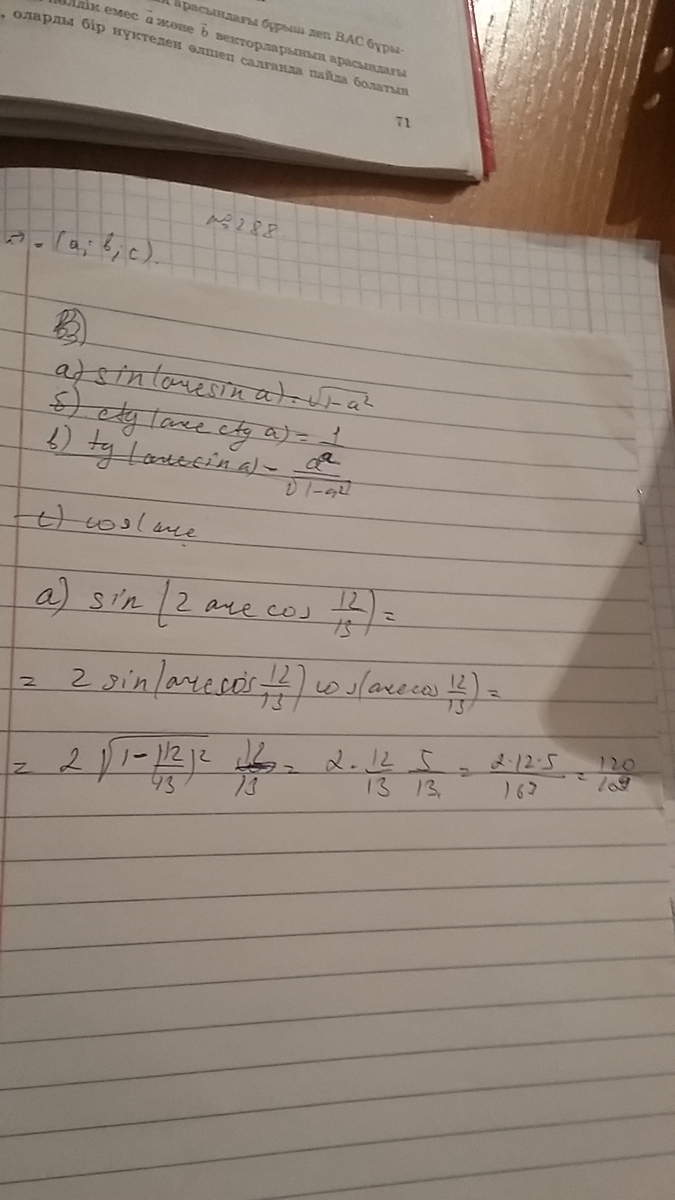 арасындағы бұрыш деп BAC бұры-
емес a⃗ және b⃗ векторларының арасындағы
, оларды бір нүктеден өлшеп салғанда пайда болатын
71
№288.
= (a; b; c).
а) sin(arcsin a) = √1-a²
б) ctg(arcctg a) = 1
в) tg(arcsin a) = a/√1-a²
c) cos(arc
а) sin(2 arccos 12/13) =
= 2 sin(arccos 12/13) cos(arccos 12/13) =
= 2 √1-(12/13)² 12/13 = 2 · 12/13 5/13 = 2·12·5/169 = 120/169